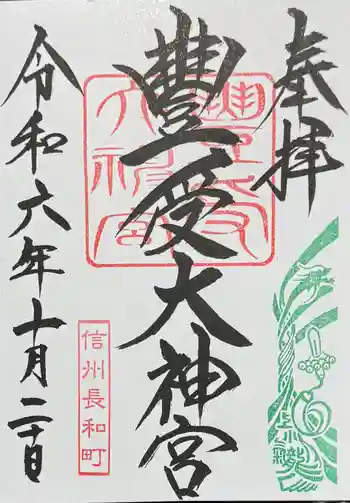 奉拝
豊受大神宮
令和六年十月二十日
信州長和町